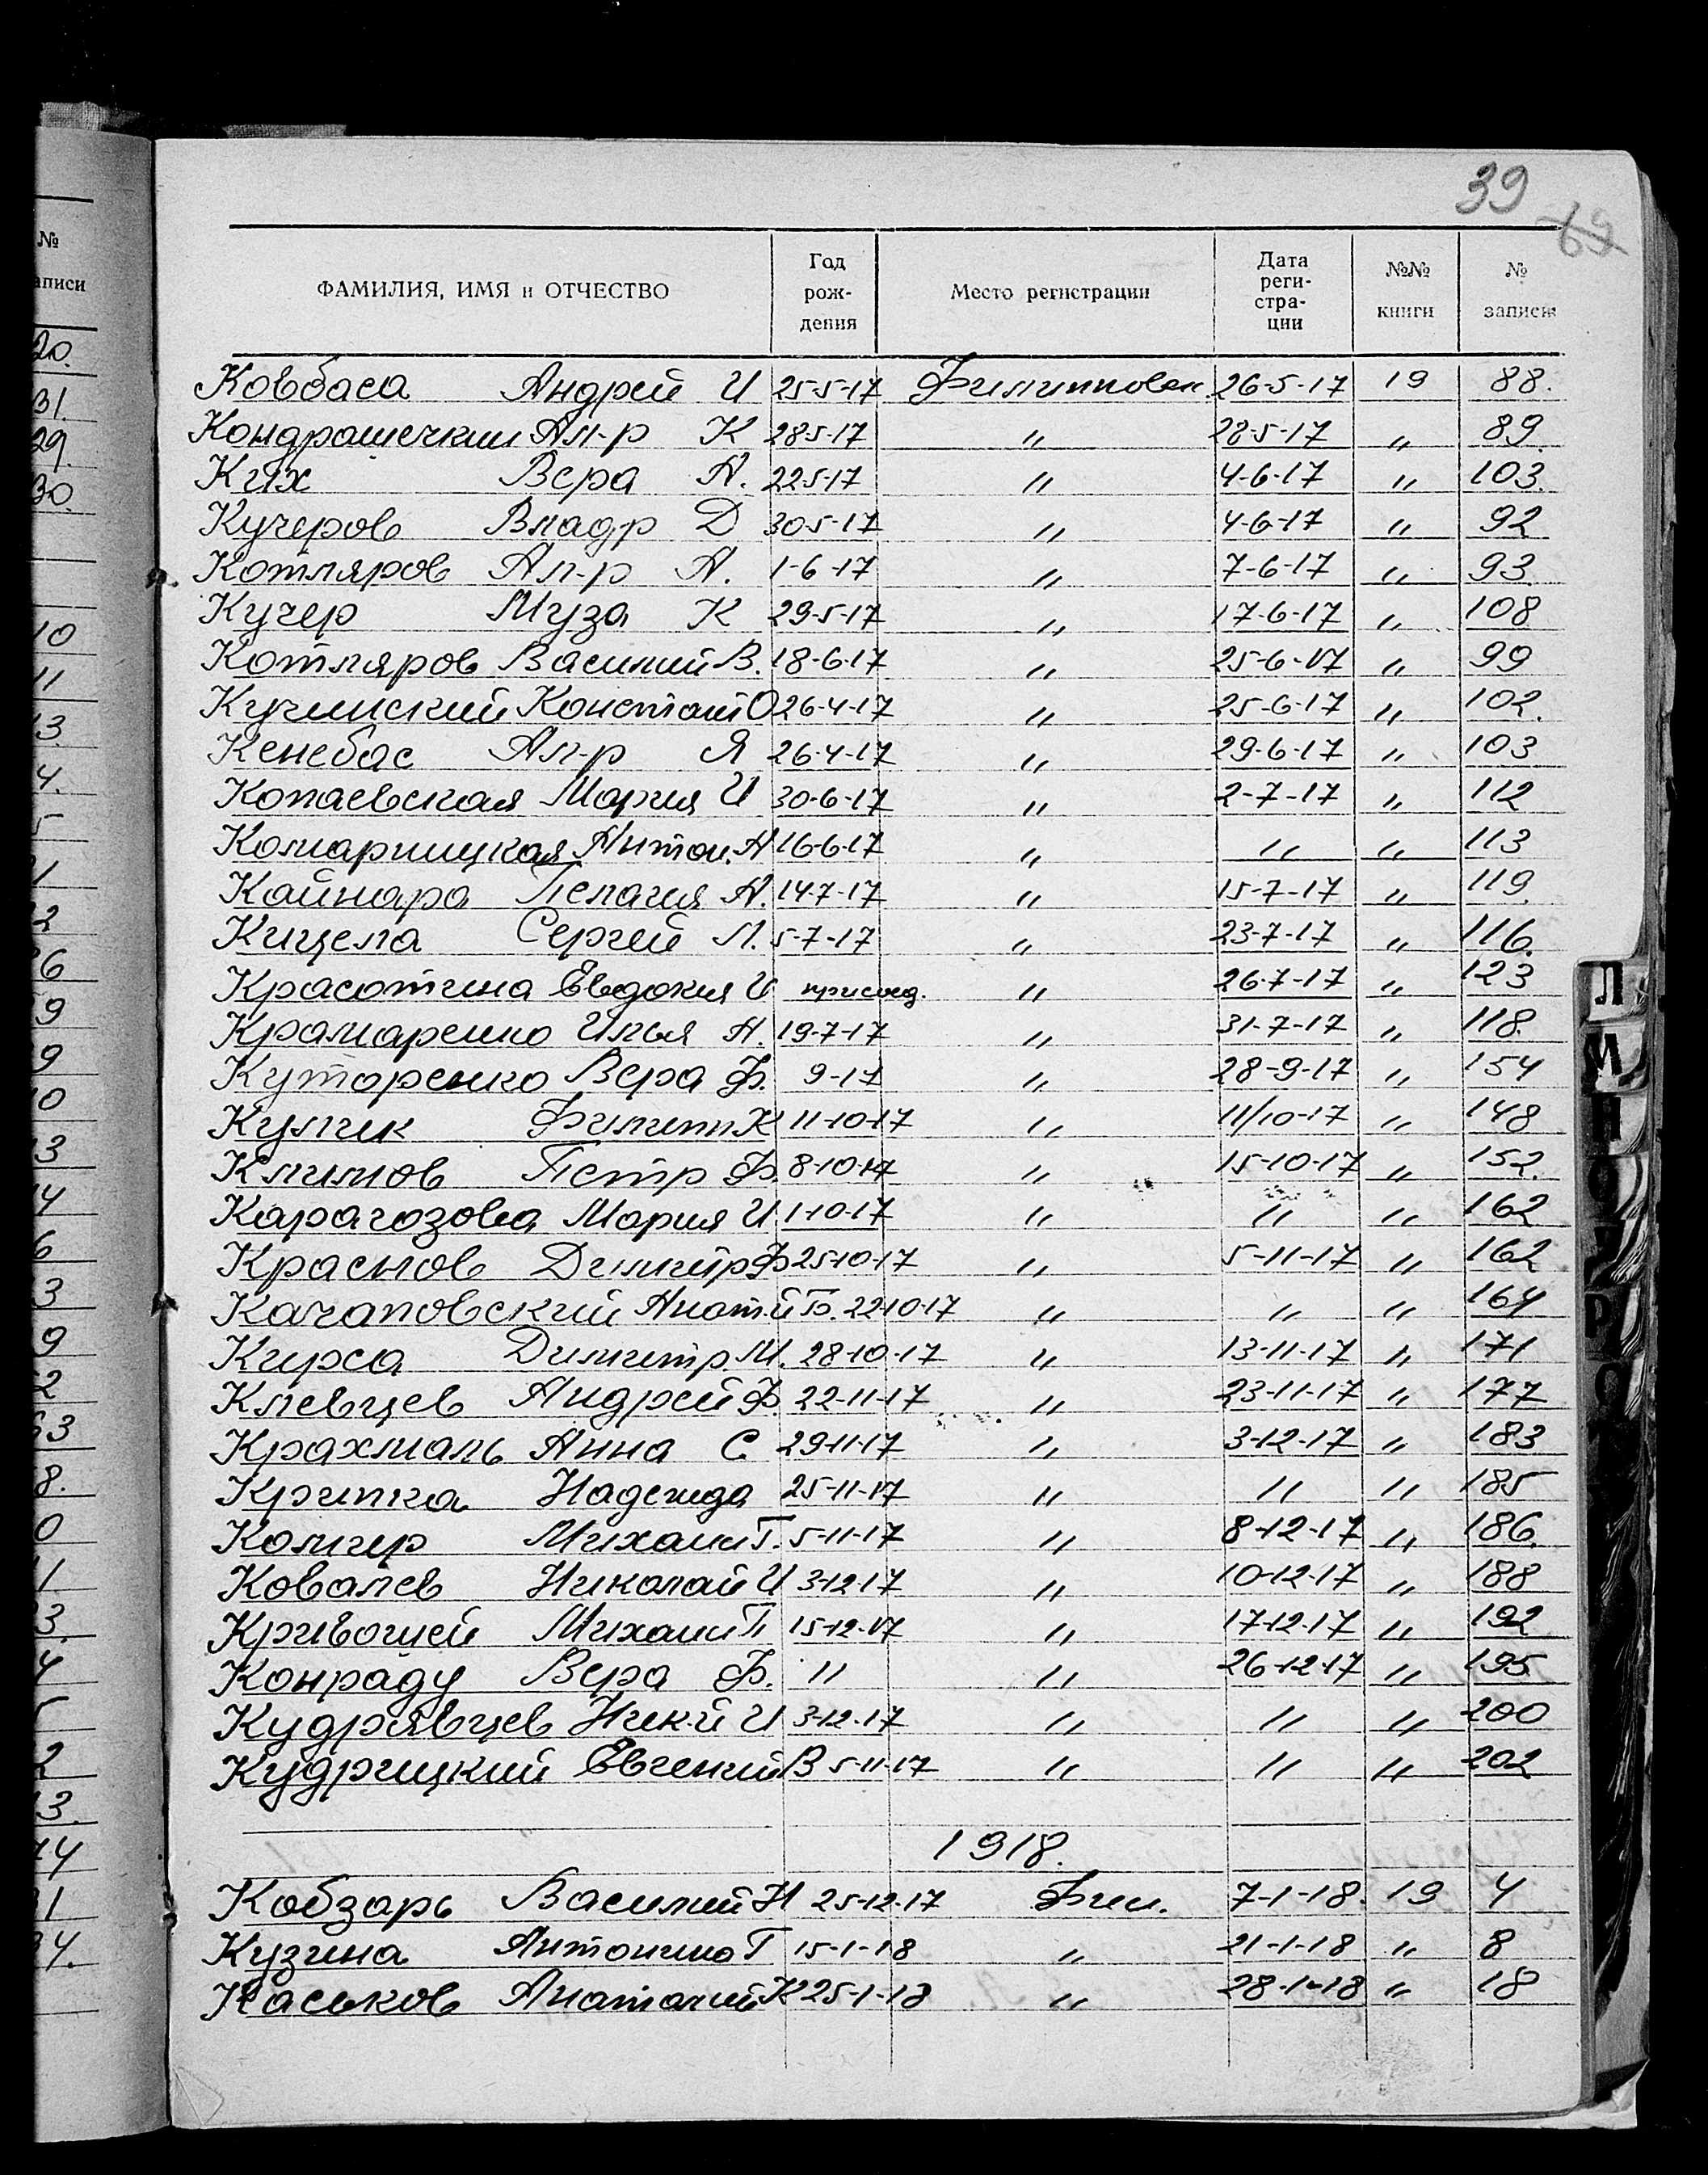 39
69
ФАМИЛИЯ, ИМЯ и ОТЧЕСТВО Год рождения Место регистрации Дата регистрации №№ книги № записи
Ковбаса Андрей И 25-5-17 Филипповск. 26-5-17 19 88.
Кондрашечкин Ал-р К 28-5-17 " 28-5-17 " 89.
Ких Вера А. 22-5-17 " 4-6-17 " 103.
Кучеров Владр Д 30-5-17 " 4-6-17 " 92
Котляров Ал-р А. 1-6-17 " 7-6-17 " 93.
Кучер Муза К 29-5-17 " 17-6-17 " 108
Котляров Василий В. 18-6-17 " 25-6-17 " 99
Кучинский Констант О 26-4-17 " 25-6-17 " 102.
Кенебас Ал-р Я 26-4-17 " 29-6-17 " 103
Копаевская Мария И 30-6-17 " 2-7-17 " 112
Комарницкая Антон. А 16-6-17 " " " 113
Кайнара Пелагия А. 14-7-17 " 15-7-17 " 119.
Кицела Сергей Л. 5-7-17 " 23-7-17 " 116.
Красоткина Евдокия И присоед. " 26-7-17 " 123
Крамаренко Илья Н. 19-7-17 " 31-7-17 " 118.
Куторенко Вера Ф. 9-17 " 28-9-17 " 154
Кулик Филипп К 11-10-17 " 11/10-17 " 148
Климов Петр Ф. 8-10-17 " 15-10-17 " 152.
Карагозова Мария И. 1-10-17 " " " 162
Краснов Димитр Ф 25-10-17 " 5-11-17 " 162
Качаповский Анат.й Б. 22-10-17 " " " 164
Кирса Димитр М. 28-10-17 " 13-11-17 " 171
Клевцев Андрей Ф. 22-11-17 " 23-11-17 " 177
Крахмаль Анна С 29-11-17 " 3-12-17 " 183
Крипка Надежда 25-11-17 " " " 185
Колкер Михаил Г. 5-11-17 " 8-12-17 " 186.
Ковалев Николай И 3-12-17 " 10-12-17 " 188
Кривошей Михаил П 15-12-17 " 17-12-17 " 192
Конраду Вера Ф. " " 26-12-17 " 195
Кудрявцев Ник.й И 3-12-17 " " " 200
Кудрицкий Евгений В 5-11-17 " " " 202
1918.
Кобзарь Василий Н 25-12-17 Фил. 7-1-18. 19 4
Кузина Антонина Г 15-1-18 " 21-1-18 " 8
Каськов Анатолий К 25-1-18 " 28-1-18 " 18
№
аписи
20.
31.
29.
30.
10
11
13.
4.
5
1
2
6
9
9
10
3
4
6
3
9
2
63
8.
0
1
3.
4
2
3.
14
31
34.
Л
М
Н
О
П
Р